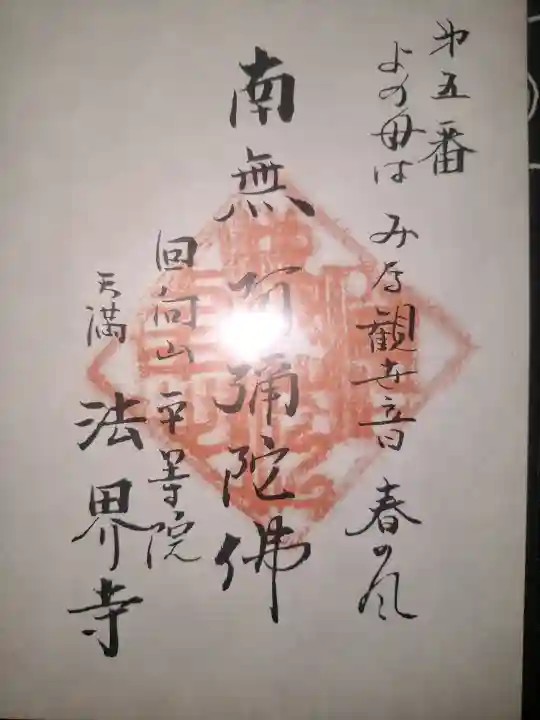 第五番
よの母は みな観世音 春の風
南無阿彌陀佛
回向山 平等院
天満 法界寺